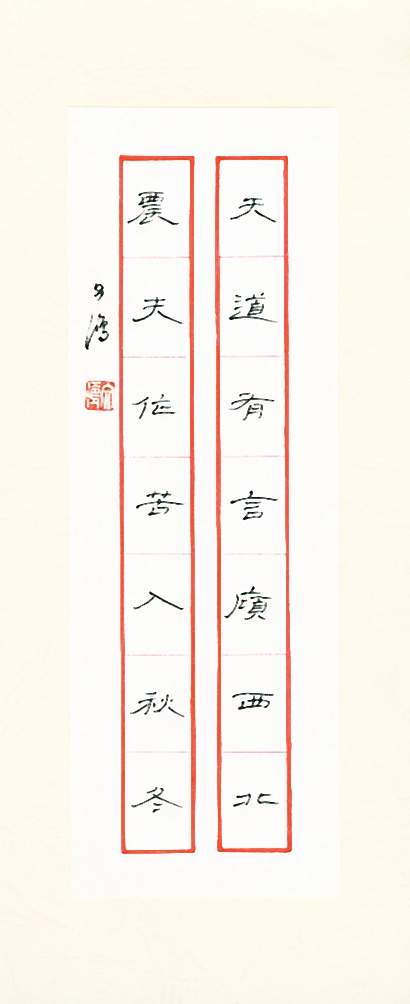 天道有言廣西北
農夫作苦入秋冬